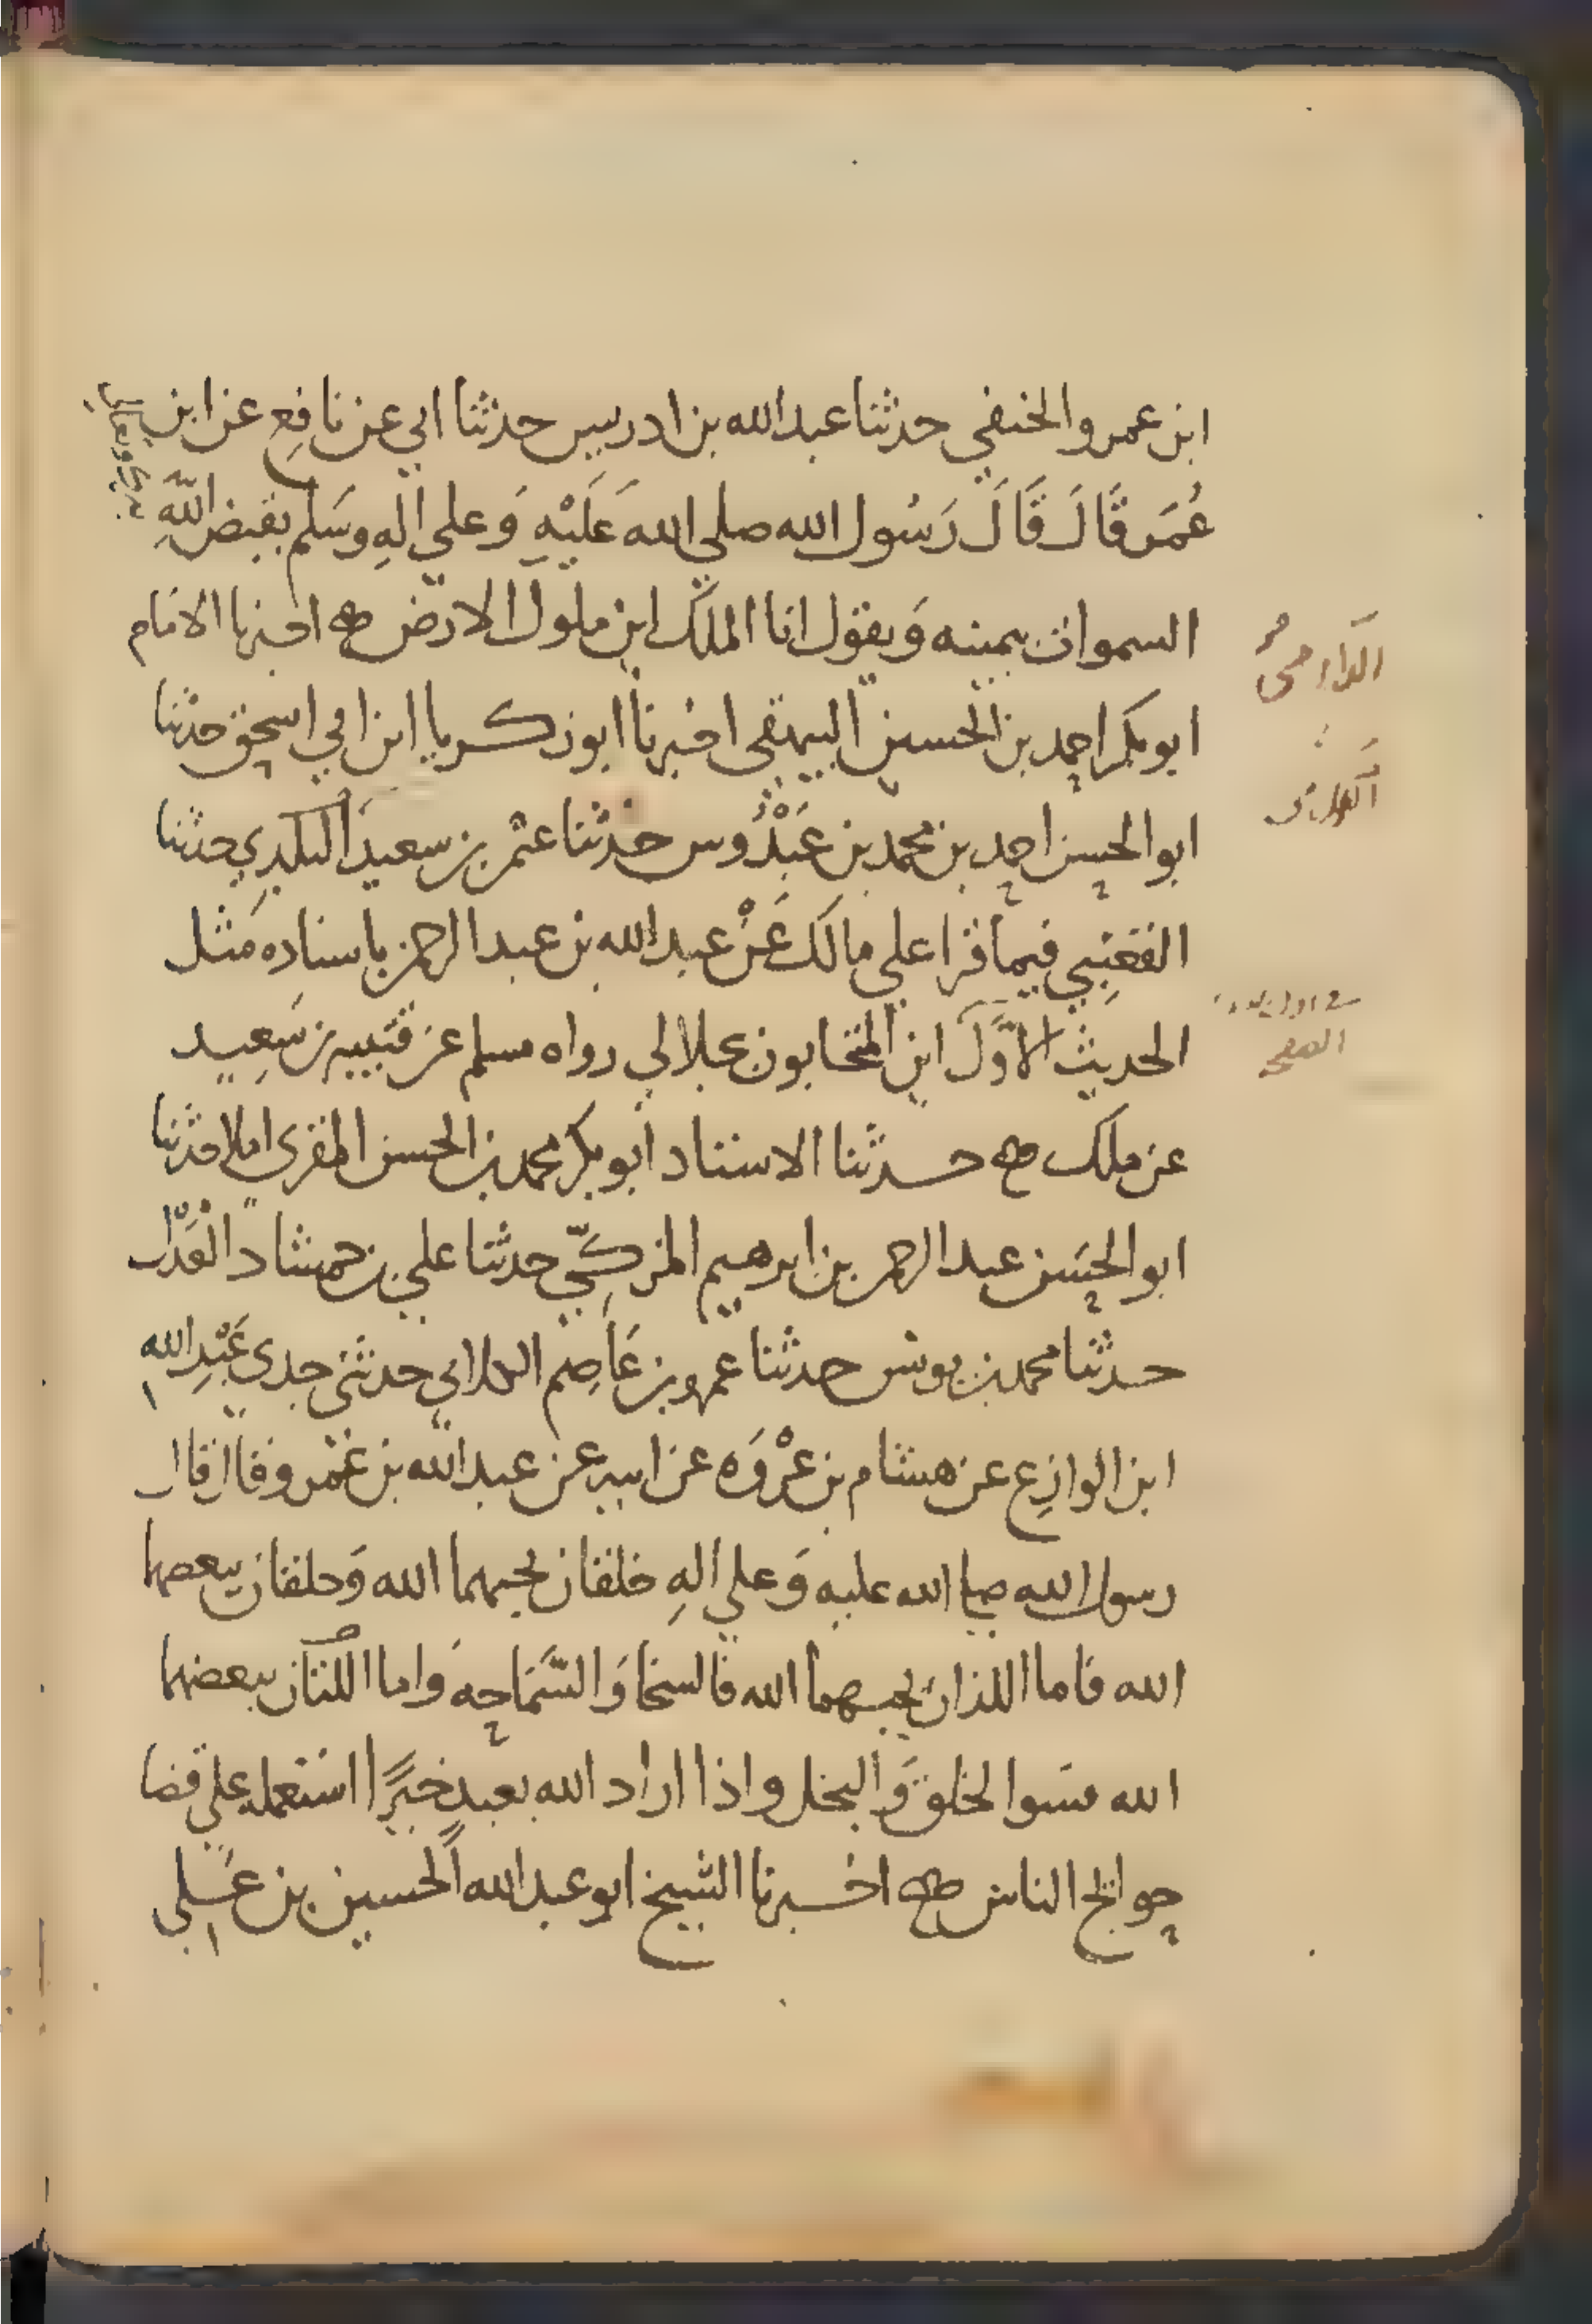 ابن عمرو الحنفي حدثنا عبد الله بن ادريس حدثنا ابي عن نافع عن ابن
عُمَر قَالَ قَالَ رَسُول الله صلى الله عَلَيْهِ وَعلى الهِ وسَلم يقبض اللهُ
السموات بيمينه وَيقول انا الملك اين ملوك الارض اخبرنا الامام
ابو بكر احمد بن الحسين البيهقي اخبرنا ابو زكريا ابن ابي اسحق حدثنا
ابو الحسن احمد بن محمد بن عَبْدُوس حدثنا عثمن بن سعيد
حدثنا
القعنبِي فيما قرا علي مالك عَنْ عبد الله بن عبد الرحمن باسناده مثل
الحديث الاوَّل اين المتحابون بجلالي رواه مسلم عن قتيبه بن سَعِيد
عن ملك حدثنا الاستاد ابو بكر محمد بن الحسن المقرى املا حدثنا
ابو الحسَن عبد الرحمن بن ابرهيم المزكِّي حدثنا علي بن حمشاد العَدْل
حدثنا محمد بن يونس حدثنا عمرو بن عَاصِم الكلابي حدثني جدي عُبَيْدِ الله
ابن الوازِع عن هشام بن عُرْوَه عن ابيه عن عبد الله بن عَمْرو قال قال
رسول الله صلى الله عليه وَعلي الهِ خلقان يحبهما الله وَخلقان يبغضهما
الله فاما اللذان يحبهما الله فالسخا وَالسَّمَاحه وَاما اللذان يبغضهما
الله فسَوا الخلق وَالبخل واذا اراد الله بعبدٍ خيرًا استعمله علي قضا
حوائج الناس اخبرنا الشيخ ابو عبد الله الحسين بن عَلي